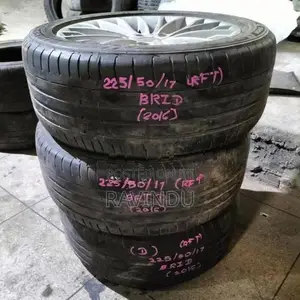 225/50/17 (RFT)
BRID
(2016)
225/50/17 (RFT
(2016)
RAVINDU
(D) (RFT)
225/50/17
BRID
(2016)